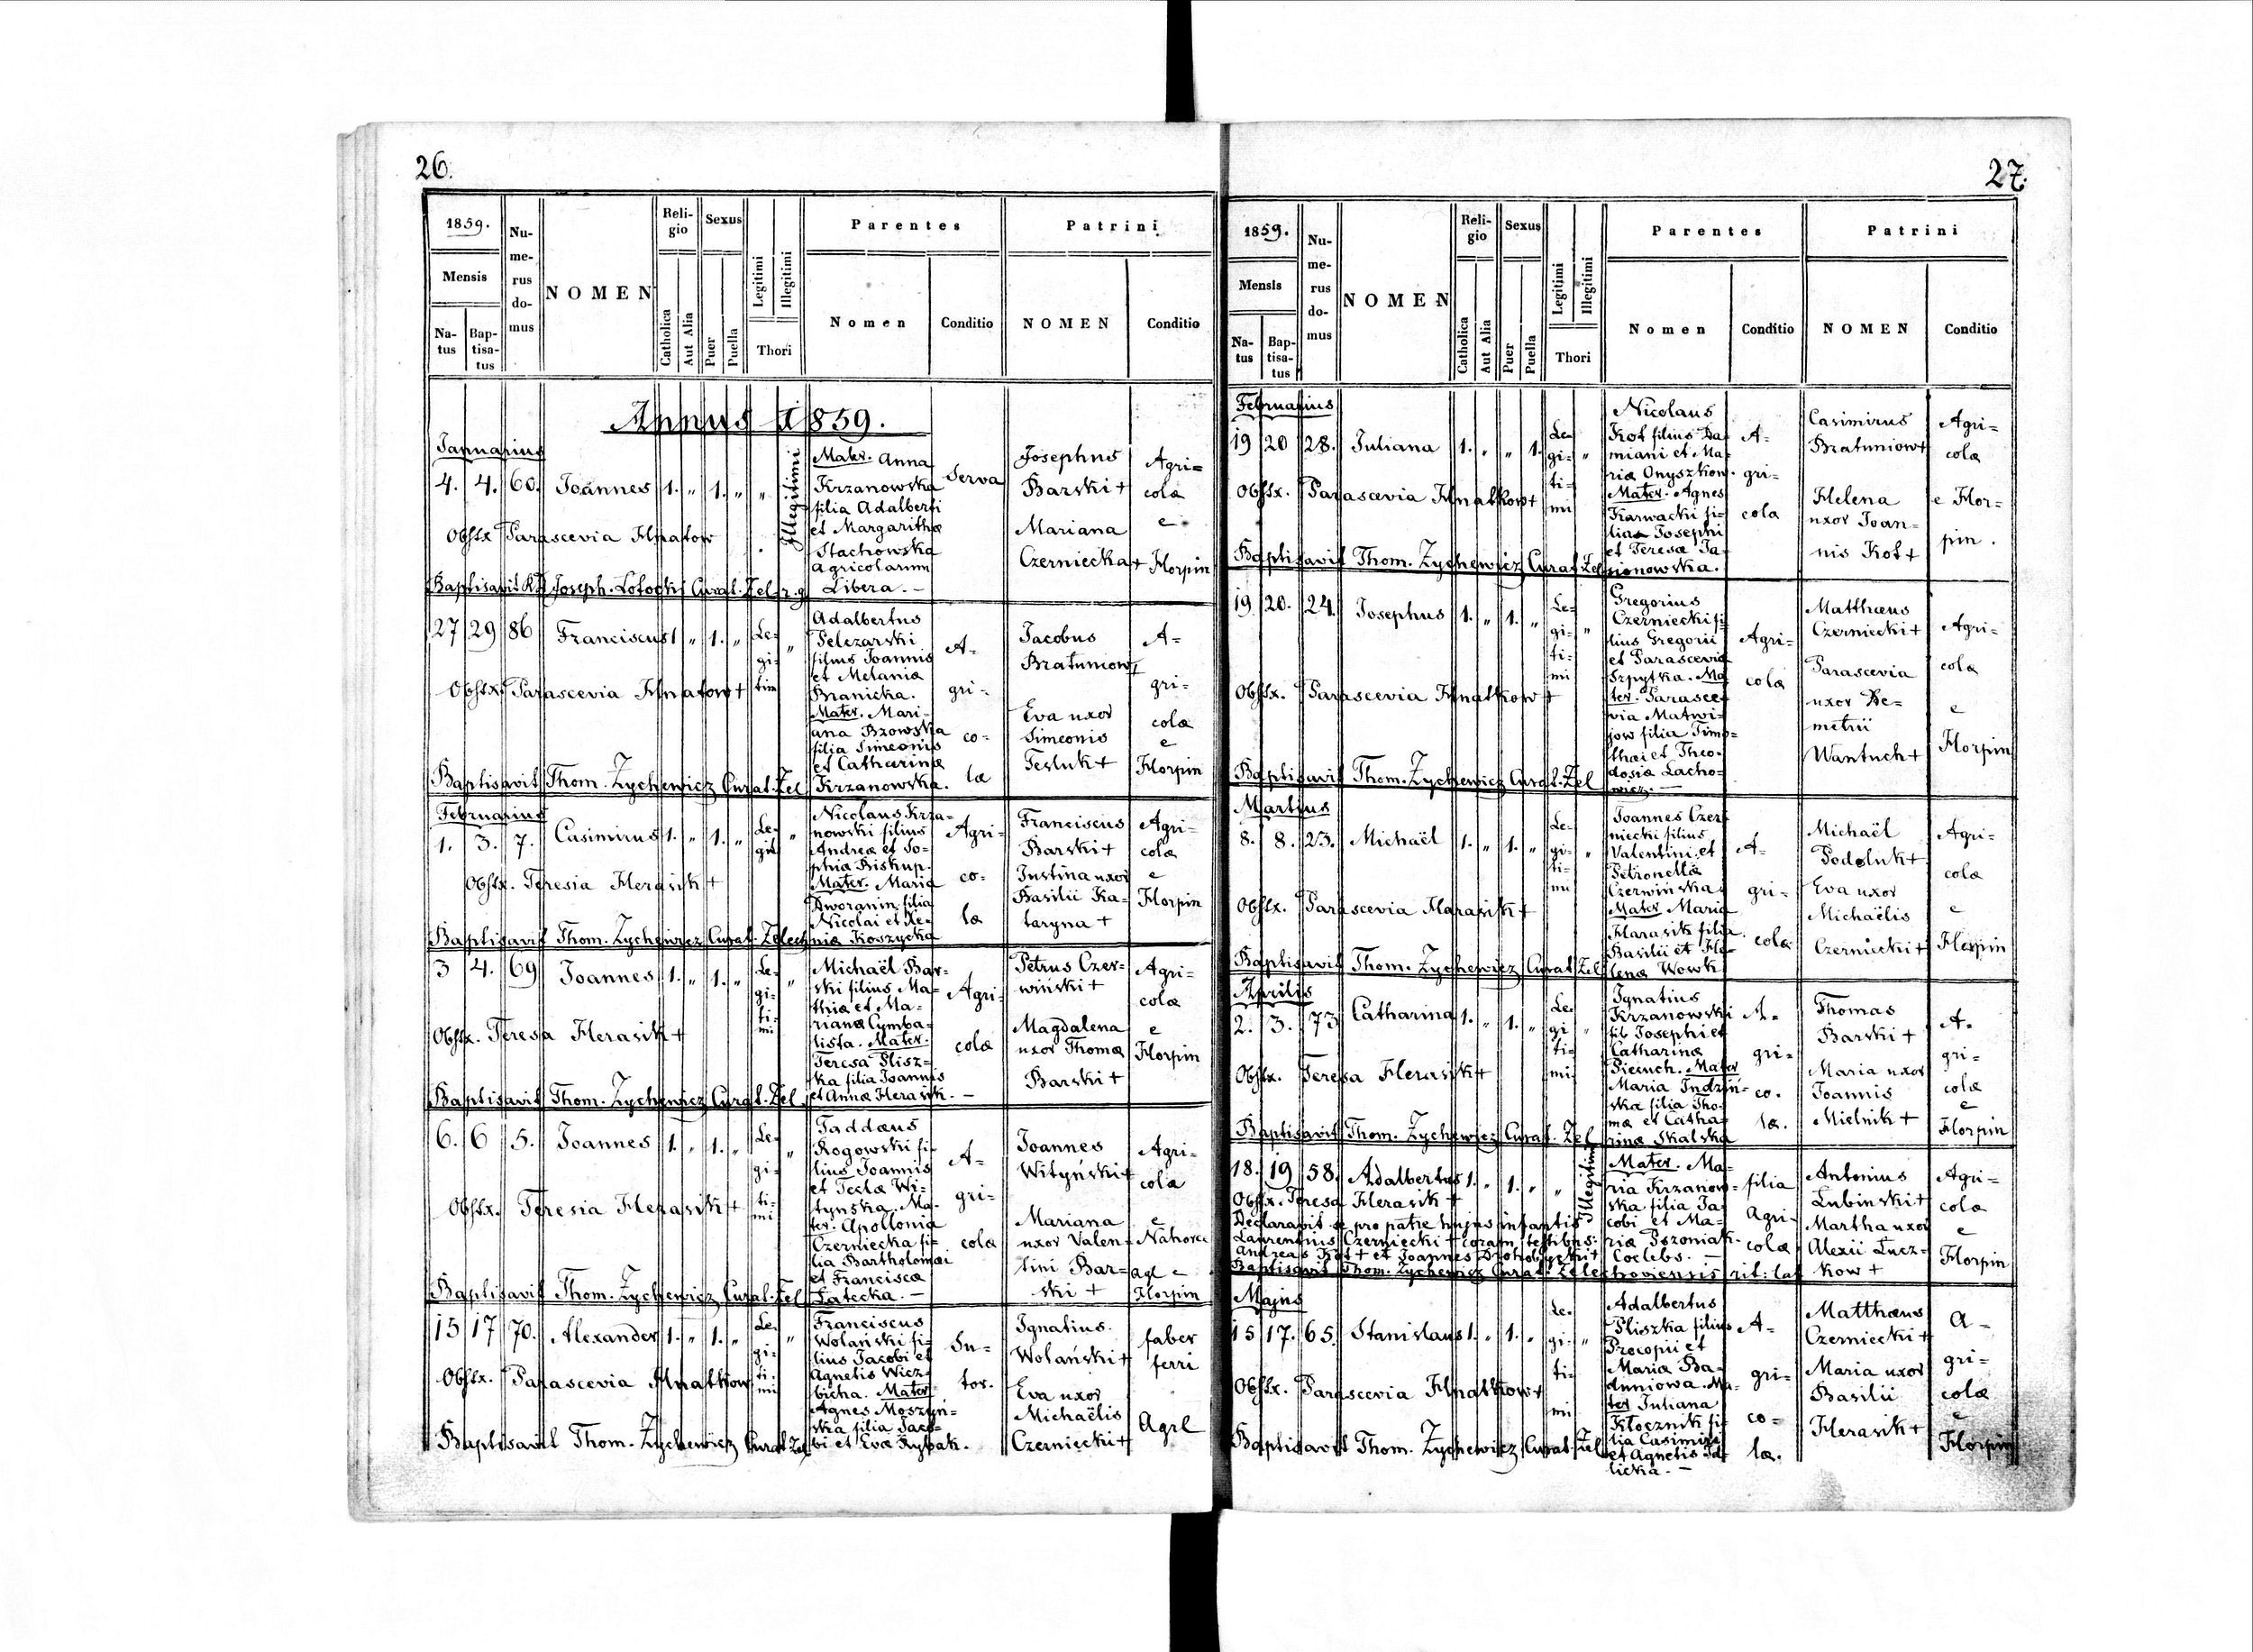 26.
1859.
Mensis
Na-
tus
Bap-
tisa-
tus
Nu-
me-
rus
do-
mus
NOMEN
Reli-
gio
Catholica
Aut Alia
Sexus
Puer
Puella
Legitimi
Illegitimi
Thori
Parentes
Nomen
Conditio
Patrini
NOMEN
Conditio
Annus 1859.
Januarius
4. 4. 60. Joannes 1. " 1. " "
Illegitimi
Mater. Anna
Krzanowska
filia Adalberti
et Margarithæ
Stachowska
Agricolarum
Libera. –
Serva
Josephus
Barski +
Mariana
Czerniecka +
Agri=
colæ
e
Horpin
Obstx Parascevia Hnatow
Baptisavit Joseph. Łotocki Curat. Zel r. g
27 29 86 Franciscus 1 " 1. "
Le-
gi-
tim
"
Adalbertus
Pelczarski
filius Joannis
et Melaniæ
Branicka.
Mater. Mari-
ana Bzowska
filia Simeonis
et Catharinæ
Krzanowska.
A-
gri-
co-
læ
Jacobus
Bratuniow +
Eva uxor
Simeonis
Tesluk +
A=
gri-
colæ
e
Horpin
Obstx. Parascevia Hnatow +
Baptisavit Thom. Zychewicz Curat. Zel
Februarius
1. 3. 7. Casimirus 1. " 1. "
Le-
git
"
Nicolaus Krza-
nowski filius
Andreæ et So-
phiæ Biskup.
Mater. Maria
Dworanin filia
Nicolai et Xe-
niæ Koszycka
Agri-
co-
læ
Franciscus
Barski +
Justina uxor
Basilii Ka-
taryna +
Agri-
colæ
e
Horpin
Obstx. Teresia Herasik +
Baptisavit Thom. Zychewicz Curat. Zelech
3 4. 69 Joannes 1. " 1. "
Le-
gi-
ti-
mi
"
Michaël Bar-
ski filius Ma-
thiæ et Ma-
rianæ Cymba-
lista. Mater.
Teresa Plisz-
ka filia Joannis
et Annæ Herasik. –
Agri-
colæ
Petrus Czer-
wiński +
Magdalena
uxor Thomæ
Barski +
Agri-
colæ
e
Horpin
Obstx. Teresa Herasik +
Baptisavit Thom. Zychewicz Curat. Zel
6. 6 5. Joannes 1. " 1. "
Le-
gi-
ti-
mi
"
Taddæus
Rogowski fi-
lius Joannis
et Teclæ Wi-
tynska. Ma-
ter. Apollonia
Czerniecka fi-
lia Bartholomæi
et Franciscæ
Łatecka. –
A-
gri-
colæ
Joannes
Wityński +
Mariana
uxor Valen-
tini Bar-
ski +
Agri-
cola
e
Nahorce
agl e
Horpin
Obstx. Teresia Herasik +
Baptisavit Thom. Zychewicz Curat. Zel
15 17 70. Alexander 1. " 1. "
Le-
gi-
ti-
mi
"
Franciscus
Wolański fi-
lius Jacobi et
Agnetis Wicz-
bicha. Mater
Agnes Moszyń-
ska filia Jaco-
bi et Evæ Rybak.
Su-
tor.
Ignatius
Wolański +
Eva uxor
Michaëlis
Czerniecki +
faber
ferri
Agrl
Obstx. Parascevia Hnatkow
Baptisavit Thom. Zychewicz Curat Zel
27.
1859.
Mensis
Na-
tus
Bap-
tisa-
tus
Nu-
me-
rus
do-
mus
NOMEN
Reli-
gio
Catholica
Aut Alia
Sexus
Puer
Puella
Legitimi
Illegitimi
Thori
Parentes
Nomen
Conditio
Patrini
NOMEN
Conditio
Februarius
19 20 28. Juliana 1. " " 1.
Le-
gi-
ti-
mi
"
Nicolaus
Kot filius Da-
miani et Ma-
riæ Onyszkiow.
Mater. Agnes
Karwacki fi-
lia Josephi
et Teresæ Ja-
sionowska.
A-
gri-
cola
Casimirus
Bratuniow +
Helena
uxor Joan-
nis Kot +
Agri-
colæ
e Hor-
pin.
Obstx. Parascevia Hnatkow +
Baptisavit Thom. Zychewicz Curat Zel
19. 20. 24. Josephus 1. " 1. "
Le-
gi-
ti-
mi
"
Gregorius
Czerniecki fi-
lius Gregorii
et Parasceviæ
Szpytka. Ma-
ter. Parasce-
via Matwi-
jow filia Timo-
thæi et Theo-
dosiæ Lacho-
wicz. –
Agri-
colæ
Matthæus
Czerniecki +
Parascevia
uxor De-
metrii
Wantuch +
Agri-
colæ
e
Horpin
Obstx. Parascevia Hnatkow +
Baptisavit Thom. Zychewicz Curat. Zel
Martius
8. 8. 23. Michaël 1. " 1. "
Le-
gi-
ti-
mi
"
Joannes Czer-
niecki filius
Valentini et
Petronellæ
Czerwińska
Mater Maria
Harasik filia
Basilii et He-
lenæ Wowk
A-
gri-
colæ
Michaël
Podoluk +
Eva uxor
Michaëlis
Czerniecki +
Agri-
colæ
e
Horpin
Obstx. Parascevia Harasik +
Baptisavit Thom. Zychewicz Curat Zel
Aprilis
2. 3. 73 Catharina 1. " 1. "
Le-
gi
ti-
mi
"
Ignatius
Krzanowski
fil Josephi et
Catharinæ
Pieńuch. Mater
Maria Indziń-
ska filia Tho-
mæ et Catha-
rinæ Skalska
A-
gri-
co.
læ.
Thomas
Barski +
Maria uxor
Joannis
Mielnik +
A-
gri-
colæ
e
Horpin
Obstx. Teresa Herasik +
Baptisavit Thom. Zychewicz Curat. Zel
18. 19 58. Adalbertus 1. " 1. " "
Illegitimi
Mater. Ma-
ria Krzanow-
ska filia Ja-
cobi et Ma-
riæ Pszoniak.
Coelebs. –
filia
Agri-
colæ
Antonius
Lubinski +
Martha uxor
Alexii Łucz-
kow +
Agri-
colæ
e
Horpin
Obstx. Teresa Herasik +
Declaravit se pro patre hujus infantis
Laurentius Czerniecki + coram testibus:
Andreas Kot + et Joannes Drohobycki +
Baptisavit Thom. Zychewicz Curat. Zelechoviensis rit: lat
Majus
15 17. 65. Stanislaus 1. " 1. "
Le-
gi-
ti-
mi
"
Adalbertus
Pliszka filius
Procopii et
Mariæ Ba-
duniowa. Ma-
ter Juliana
Kłocznik fi-
lia Casimiri
et Agnetis
licka. –
A-
gri-
co-
læ.
Matthæus
Czerniecki +
Maria uxor
Basilii
Herasik +
A-
gri-
colæ
e
Horpin
Obstx. Parascevia Hnatkow +
Baptisavit Thom. Zychewicz Curat. Zel